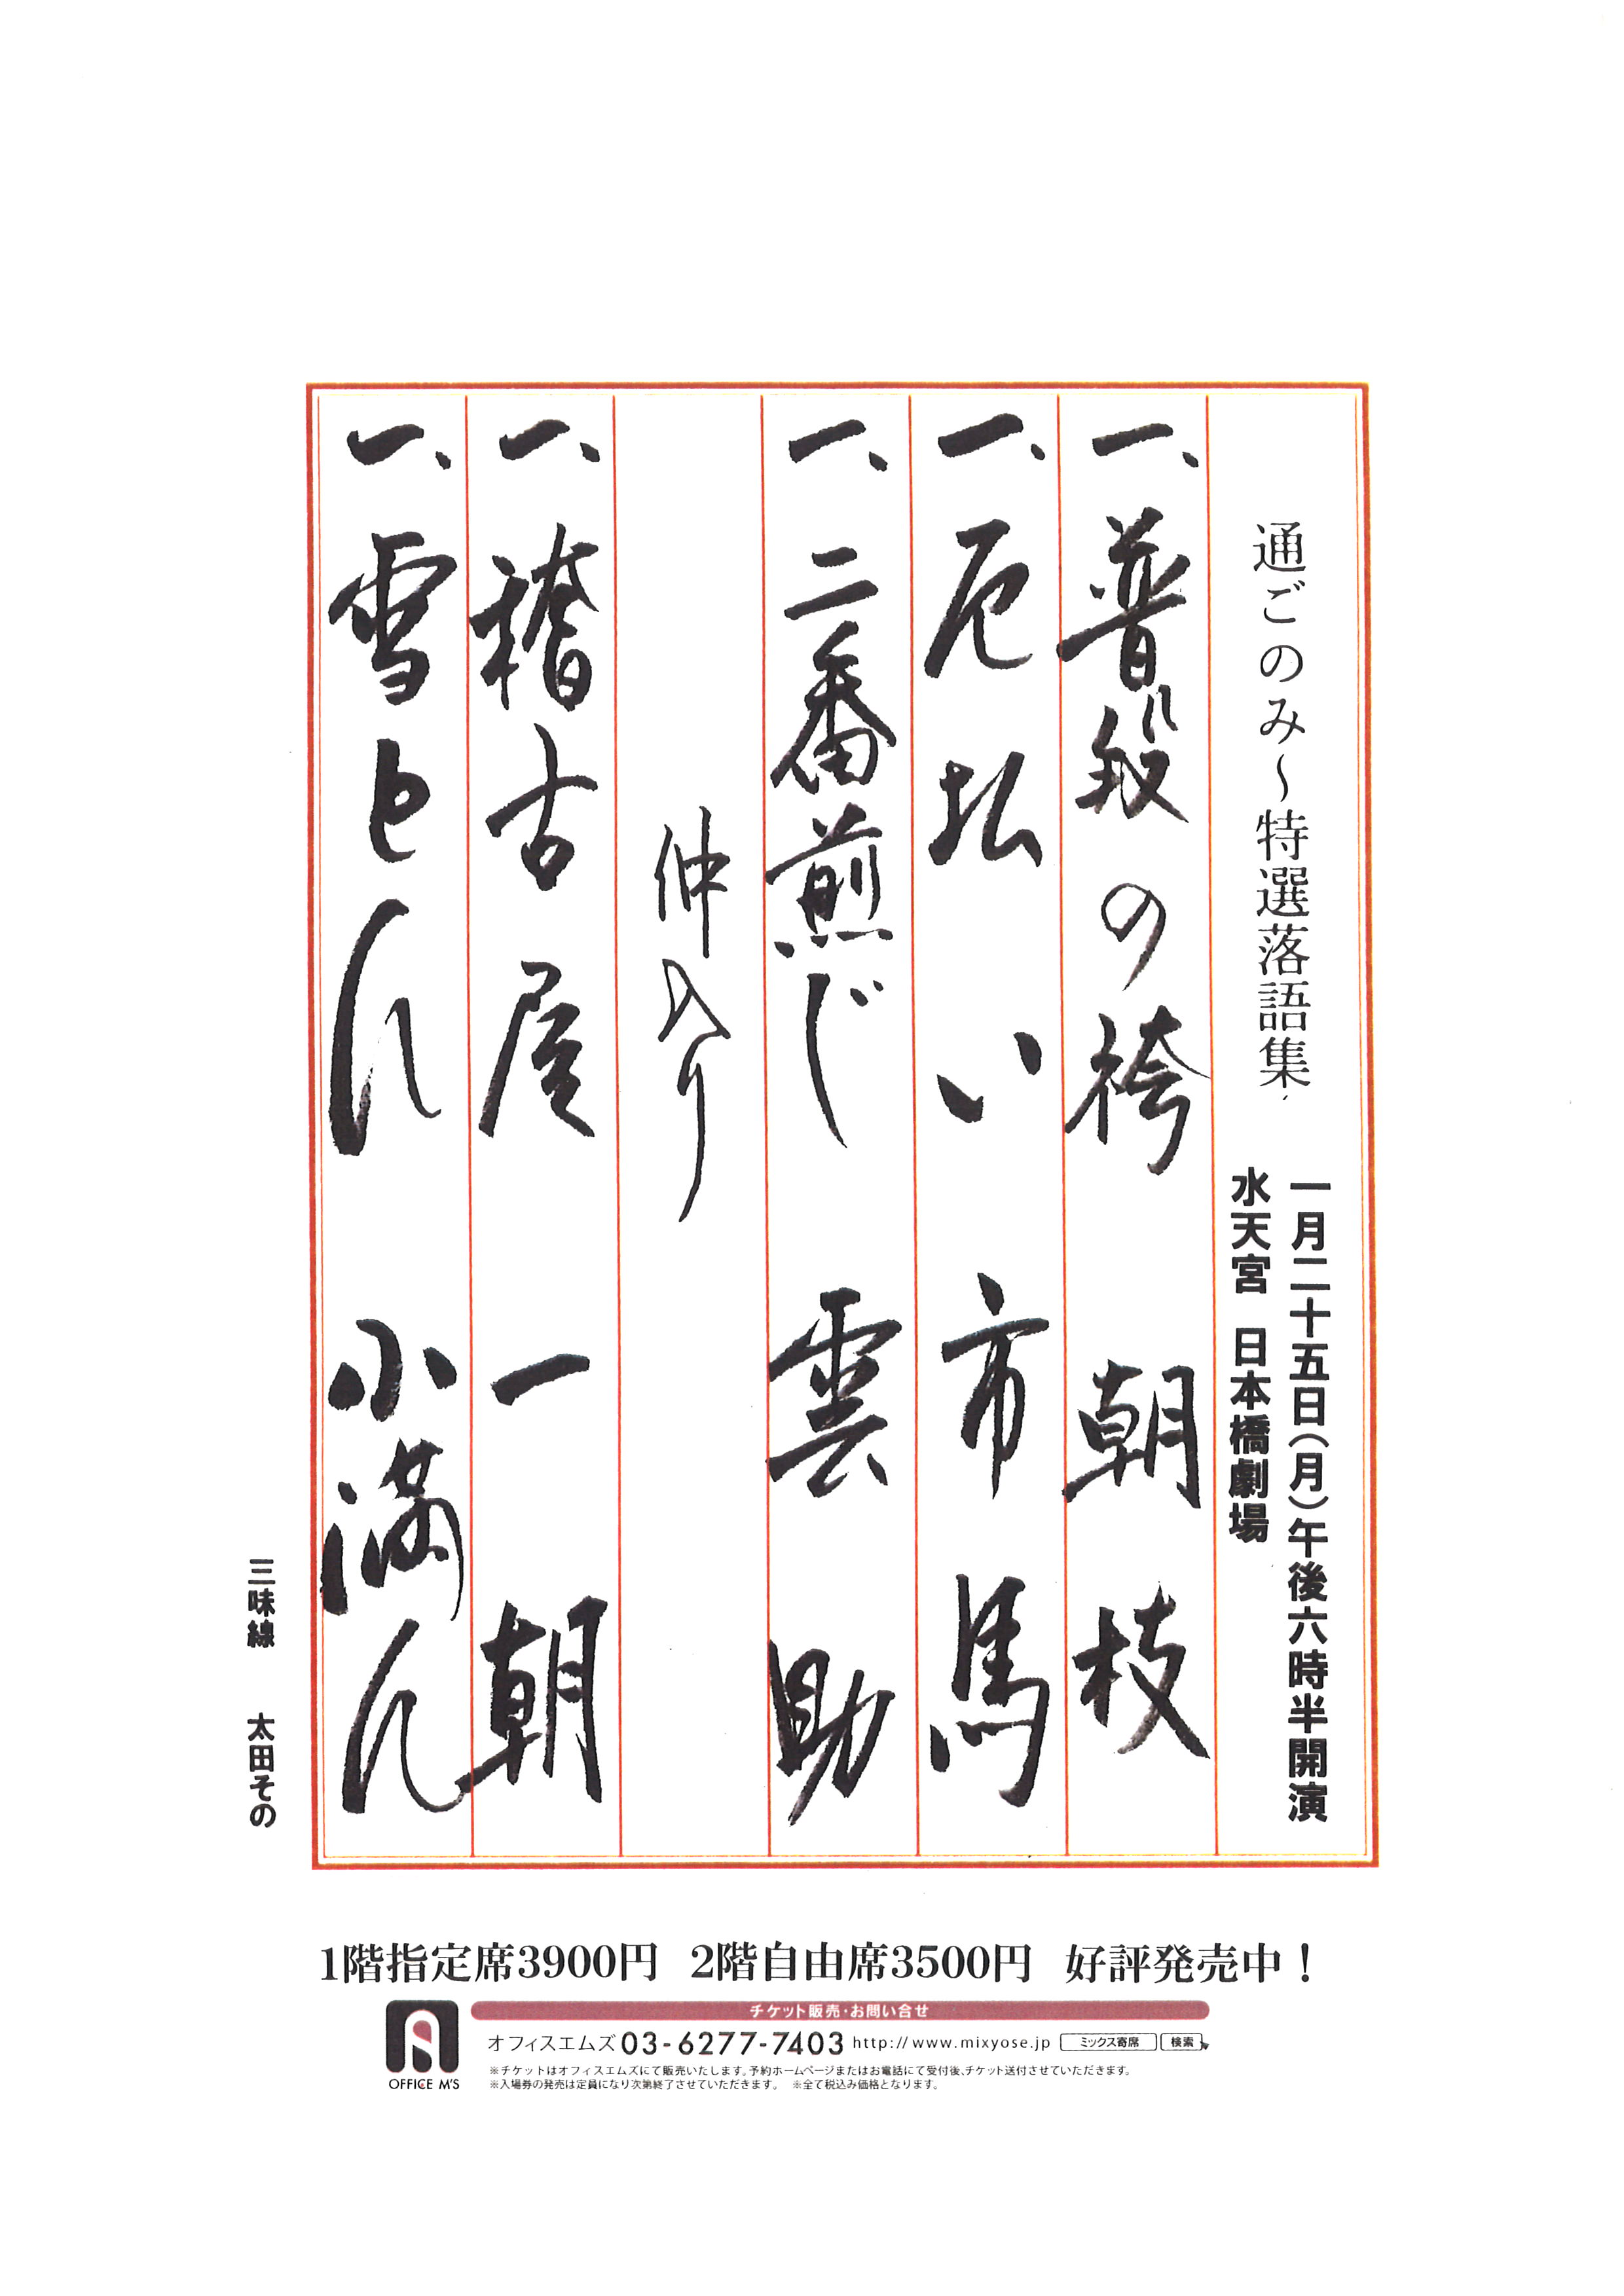 通ごのみ～特選落語集
一月二十五日(月)午後六時半開演
水天宮 日本橋劇場
一、普段の袴 朝枝
一、厄払い 市馬
一、二番煎じ 雲助
仲入り
一、稽古屋 一朝
一、雪とん 小満ん
三味線 太田その
1階指定席3900円 2階自由席3500円 好評発売中!
チケット販売・お問い合せ
オフィスエムズ03-6277-7403 http://www.mixyose.jp ミックス寄席 検索
OFFICE M'S
※チケットはオフィスエムズにて販売いたします。予約ホームページまたはお電話にて受付後、チケット送付させていただきます。
※入場券の発売は定員になり次第終了させていただきます。 ※全て税込み価格となります。